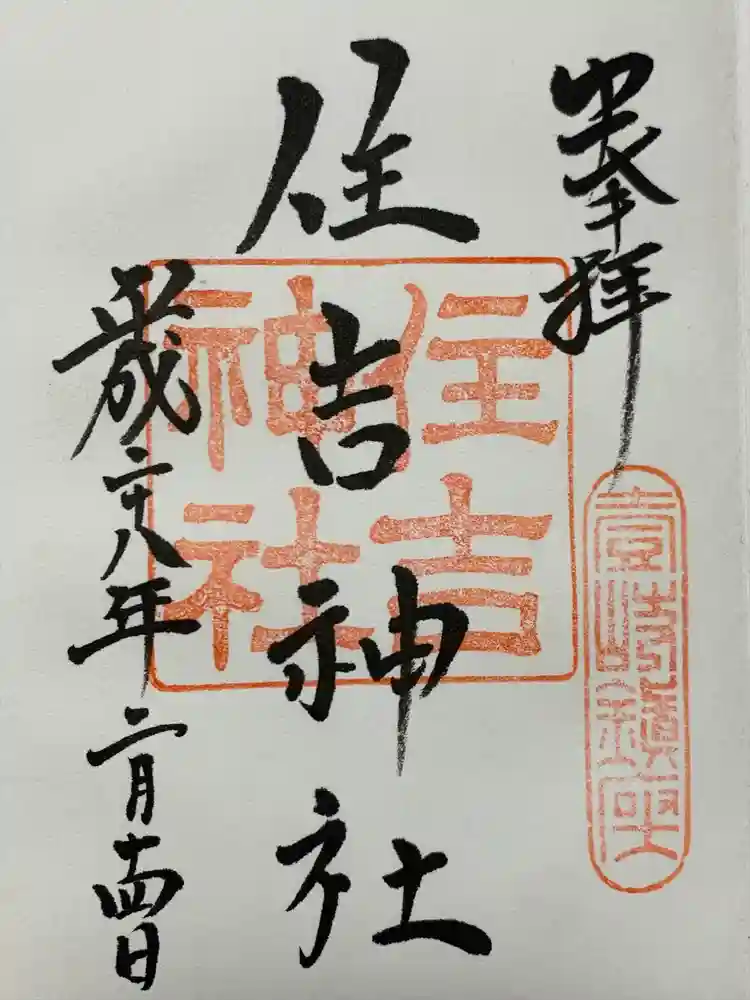 奉拝
壹岐鎮座
住吉神社
住吉
神社
歳二十八年二月十四日